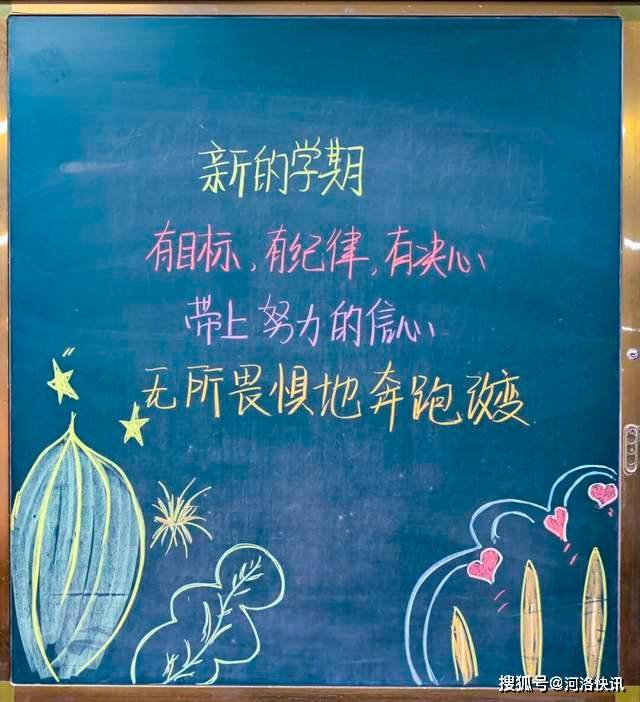 新的学期
有目标,有纪律,有决心
带上努力的信心
无所畏惧地奔跑改变
搜狐号@河洛快讯